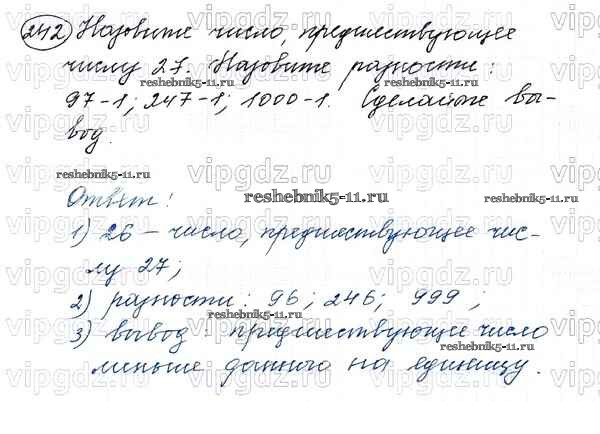 242 Назовите число, предшествующее
числу 27. Назовите разности:
97-1; 247-1; 1000-1. Сделайте вы-
вод.
Ответ:
1) 26 – число, предшествующее чис-
лу 27;
2) разности: 96; 246; 999;
3) вывод: предшествующее число
меньше данного на единицу.
vipgdz.ru
reshebnik5-11.ru